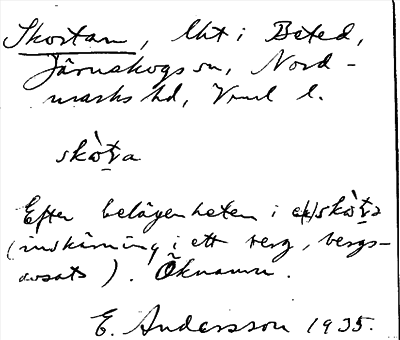 Skortan, lht i Beted,
Järnskogs sn, Nord-
marks hd, Vrml l.
skò̱ta
Efter belägenheten i e(n) skò̱ta
(inskärning i ett berg, bergs-
avsats). Öknamn.
E. Andersson 1935.